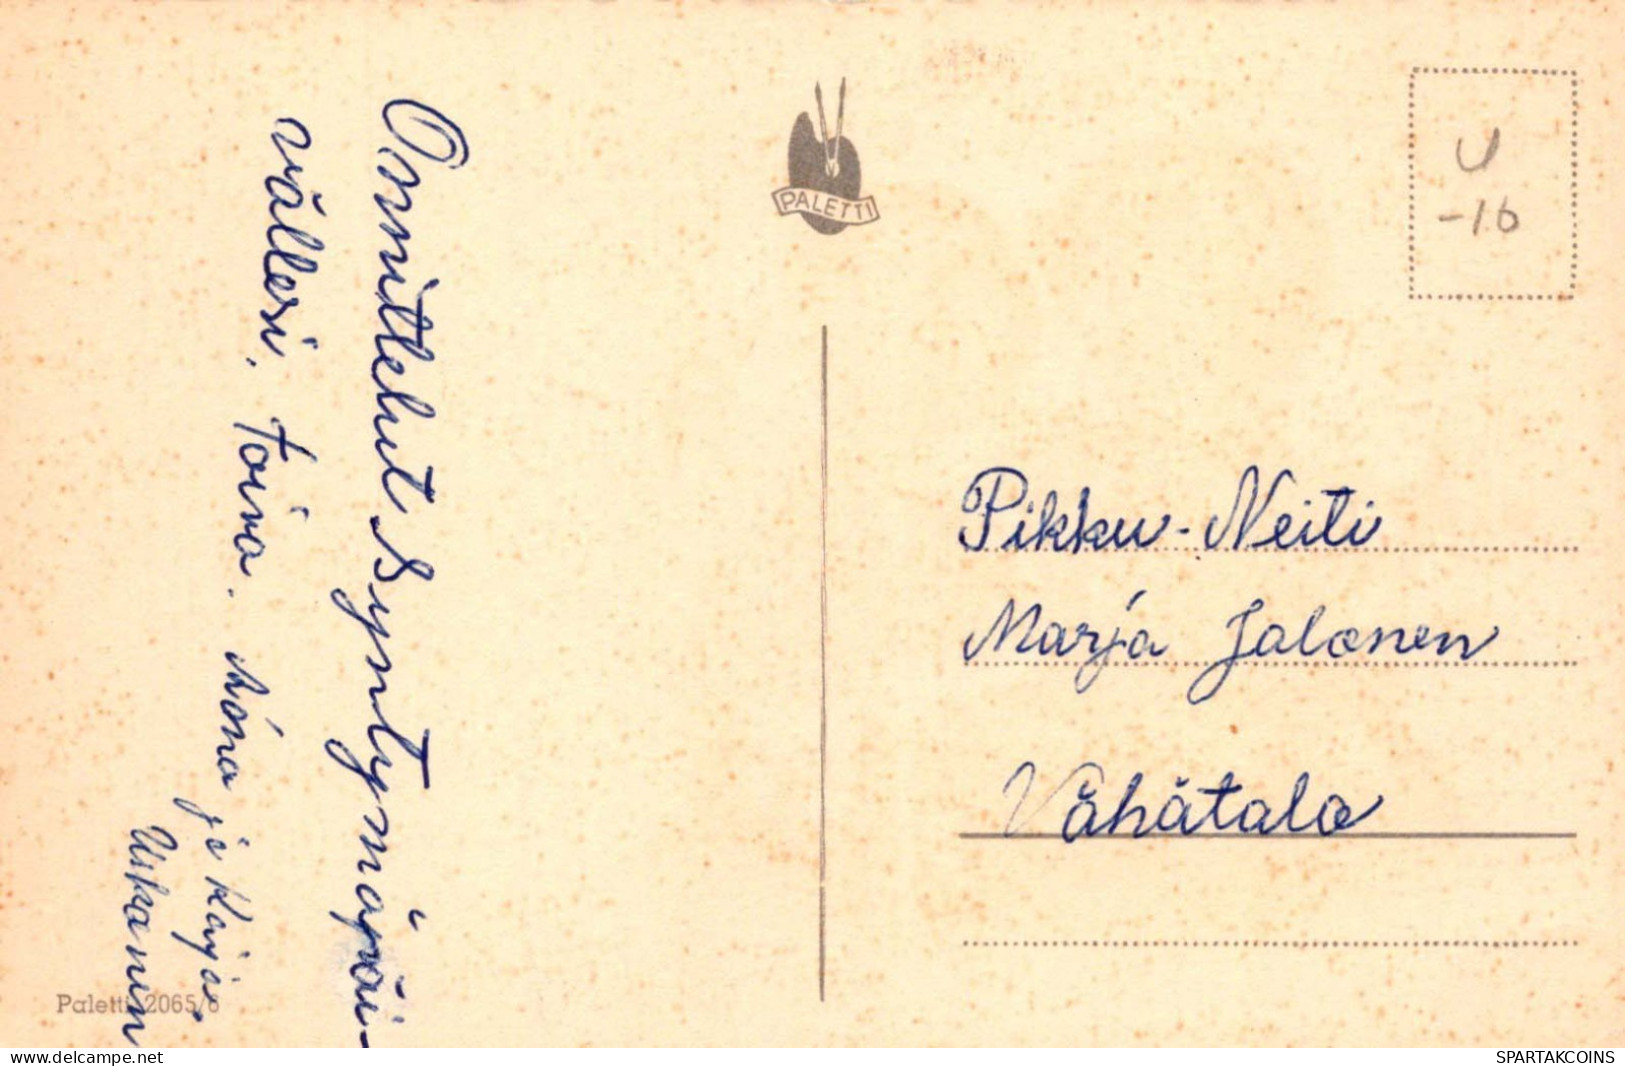 Onnittelut Syntymäpäi-
vällesi. Toivo.
ja Kaija
PALETTI
U
-16
Pikku-Neiti
Marja Jalonen
Vähätalo
Paletti 2065/6
www.delcampe.net
SPARTAKCOINS